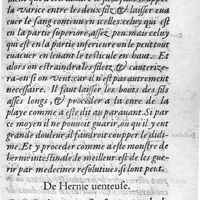 la varice entre les deux filz & laisser eua
cuer le sang contenu en icelles: celuy qui est
en la partie superiore, assez peu: mais celuy
qui est en la partie inferieure on le peut tout
euacuer en leuant le testicule en haut. Et
alors on estraindra les filetz, & cauterize-
ra-on si on veut, car il n'est pas autrement
necessaire. Il faut laisser les bouts des filz
assés longs, & proceder a la cure de la
playe comme a esté dit au parauant. Si par
ce moyen il ne pouuoit guarir, ou qu'il y eut
grande douleur, il faudroit coupper le didi-
me. Et y proceder comme a esté monstré de
hernie intestinale. le meilleur est de les gue-
rir par medecines resolutiues, si lont peut.
De Hernie uenteuse.